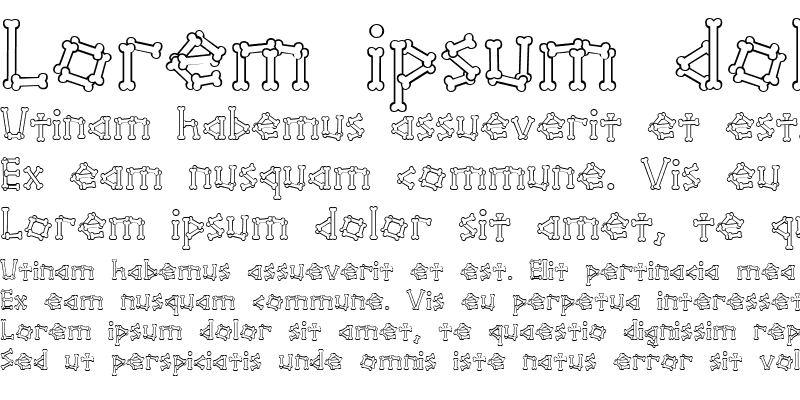 Lorem ipsum dol
Utinam habemus assueverit et est.
Ex eam nusquam commune. Vis eu
Lorem ipsum dolor sit amet, te qu
Utinam habemus assueverit et est. Elit pertinacia mea
Ex eam nusquam commune. Vis eu perpetua interesset
Lorem ipsum dolor sit amet, te quaestio dignissim rep
Sed ut perspiciatis unde omnis iste natus error sit vol